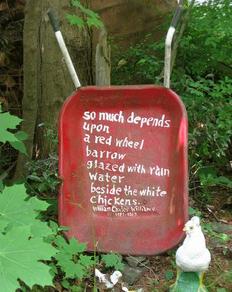 so much depends
upon
a red wheel
barrow
glazed with rain
water
beside the white
chickens.
William Carlos Williams
1883-1963